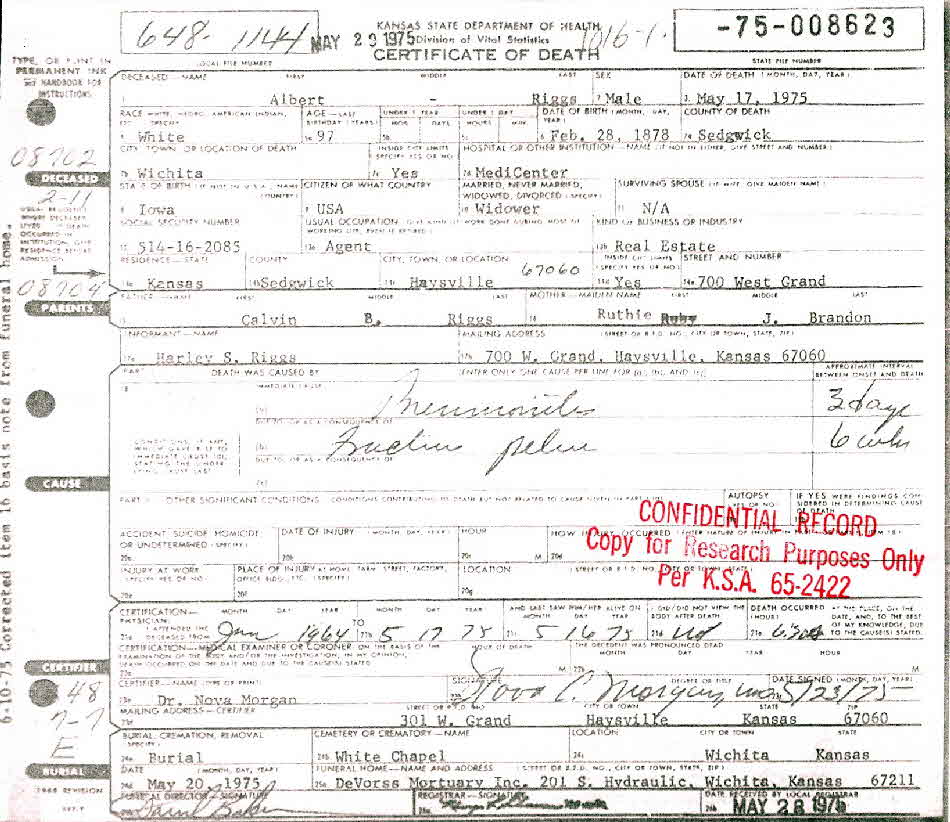 648- 1144
KANSAS STATE DEPARTMENT OF HEALTH
MAY 29 1975 Division of Vital Statistics
CERTIFICATE OF DEATH
-75-008623
LOCAL FILE NUMBER
STATE FILE NUMBER
TYPE, OR PRINT IN
PERMANENT INK
SEE HANDBOOK FOR
INSTRUCTIONS
DECEASED—NAME FIRST MIDDLE LAST SEX DATE OF DEATH (MONTH, DAY, YEAR)
Albert - Riggs Male May 17, 1975
RACE WHITE, NEGRO, AMERICAN INDIAN, AGE—LAST BIRTHDAY (YEARS) UNDER 1 YEAR MOS. DAYS UNDER 1 DAY HOURS MIN. DATE OF BIRTH (MONTH, DAY, YEAR) COUNTY OF DEATH
White 97 Feb. 28, 1878 Sedgwick
CITY, TOWN, OR LOCATION OF DEATH INSIDE CITY LIMITS SPECIFY YES OR NO HOSPITAL OR OTHER INSTITUTION—NAME (IF NOT IN EITHER, GIVE STREET AND NUMBER)
Wichita Yes MediCenter
08702
DECEASED
2-11
STATE OF BIRTH (IF NOT IN U.S.A., NAME COUNTRY) CITIZEN OF WHAT COUNTRY MARRIED, NEVER MARRIED, WIDOWED, DIVORCED (SPECIFY) SURVIVING SPOUSE (IF WIFE, GIVE MAIDEN NAME)
Iowa USA Widower N/A
USUAL RESIDENCE
WHERE DECEASED
LIVED. IF DEATH
OCCURRED IN
INSTITUTION, GIVE
RESIDENCE BEFORE
ADMISSION
SOCIAL SECURITY NUMBER USUAL OCCUPATION (GIVE KIND OF WORK DONE DURING MOST OF WORKING LIFE, EVEN IF RETIRED) KIND OF BUSINESS OR INDUSTRY
514-16-2085 Agent Real Estate
RESIDENCE—STATE COUNTY CITY, TOWN, OR LOCATION INSIDE CITY LIMITS (SPECIFY YES OR NO) STREET AND NUMBER
08704
Kansas Sedgwick Haysville 67060 Yes 700 West Grand
PARENTS
FATHER—NAME FIRST MIDDLE LAST MOTHER—MAIDEN NAME FIRST MIDDLE LAST
Calvin B. Riggs Ruthie Ruby J. Brandon
INFORMANT—NAME MAILING ADDRESS (STREET OR R.F.D. NO., CITY OR TOWN, STATE, ZIP)
Harley S. Riggs 700 W. Grand, Haysville, Kansas 67060
PART I DEATH WAS CAUSED BY (ENTER ONLY ONE CAUSE PER LINE FOR (a), (b), AND (c)) APPROXIMATE INTERVAL BETWEEN ONSET AND DEATH
IMMEDIATE CAUSE
(a) Pneumonitis 3 days
DUE TO, OR AS A CONSEQUENCE OF
CONDITIONS, IF ANY,
WHICH GAVE RISE TO
IMMEDIATE CAUSE (a),
STATING THE UNDER-
LYING CAUSE LAST
(b) Fracture pelvis 6 wks
DUE TO, OR AS A CONSEQUENCE OF
(c)
CAUSE
PART II OTHER SIGNIFICANT CONDITIONS CONDITIONS CONTRIBUTING TO DEATH BUT NOT RELATED TO CAUSE GIVEN IN PART I (a) AUTOPSY YES OR NO IF YES WERE FINDINGS CONSIDERED IN DETERMINING CAUSE OF DEATH
CONFIDENTIAL RECORD
Copy for Research Purposes Only
Per K.S.A. 65-2422
ACCIDENT SUICIDE HOMICIDE OR UNDETERMINED (SPECIFY) DATE OF INJURY MONTH, DAY, YEAR HOUR M HOW INJURY OCCURRED
INJURY AT WORK SPECIFY YES OR NO PLACE OF INJURY AT HOME, FARM, STREET, FACTORY, OFFICE BLDG., ETC. (SPECIFY) LOCATION
CERTIFICATION—PHYSICIAN: I ATTENDED THE DECEASED FROM MONTH DAY YEAR TO MONTH DAY YEAR AND LAST SAW HIM/HER ALIVE ON MONTH DAY YEAR I DID/DID NOT VIEW THE BODY AFTER DEATH DEATH OCCURRED (HOUR) AT THE PLACE, ON THE DATE, AND, TO THE BEST OF MY KNOWLEDGE, DUE TO THE CAUSE(S) STATED.
Jan 1964 5 17 75 5 16 75
CERTIFICATION—MEDICAL EXAMINER OR CORONER: ON THE BASIS OF THE EXAMINATION OF THE BODY AND/OR THE INVESTIGATION, IN MY OPINION, DEATH OCCURRED ON THE DATE AND DUE TO THE CAUSE(S) STATED HOUR OF DEATH THE DECEDENT WAS PRONOUNCED DEAD MONTH DAY YEAR HOUR
CERTIFIER
48
7-7
E
CERTIFIER—NAME (TYPE OR PRINT) SIGNATURE DEGREE OR TITLE DATE SIGNED (MONTH, DAY, YEAR)
Dr. Nova Morgan Nova C. Morgan, MD 5/23/75
MAILING ADDRESS—CERTIFIER STREET OR R.F.D. NO. CITY OR TOWN STATE ZIP
301 W. Grand Haysville Kansas 67060
BURIAL, CREMATION, REMOVAL SPECIFY CEMETERY OR CREMATORY—NAME LOCATION CITY OR TOWN STATE
Burial White Chapel Wichita Kansas
BURIAL
DATE (MONTH, DAY, YEAR) FUNERAL HOME—NAME AND ADDRESS (STREET OR R.F.D. NO., CITY OR TOWN, STATE, ZIP)
May 20, 1975 DeVorss Mortuary Inc. 201 S. Hydraulic, Wichita, Kansas 67211
1968 REVISION
FUNERAL DIRECTOR—SIGNATURE REGISTRAR—SIGNATURE DATE RECEIVED BY LOCAL REGISTRAR
MAY 28 1975
6-10-75 Corrected item 16 basis note from funeral home.